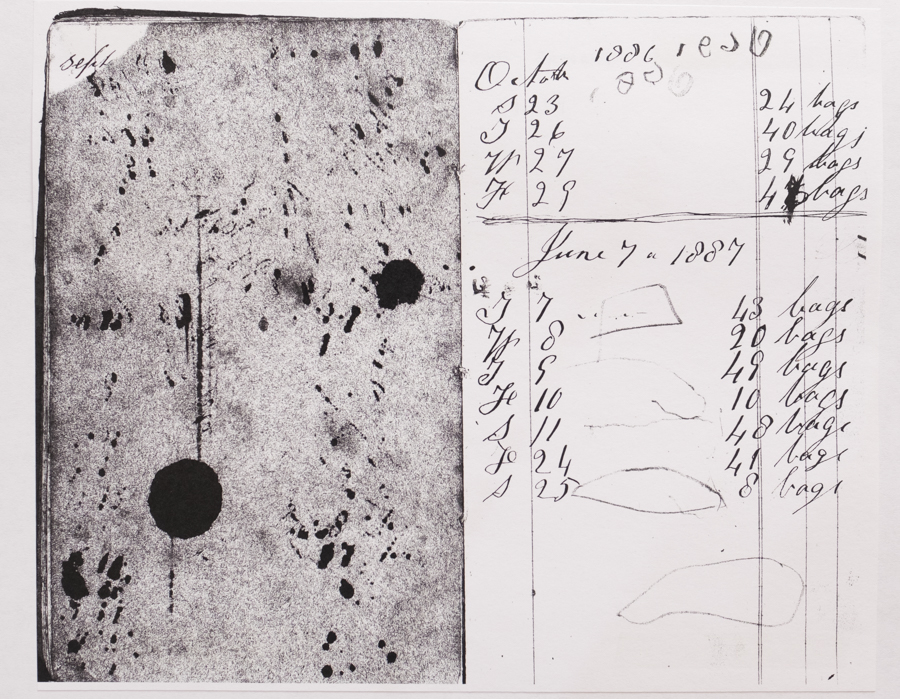 Sept
1886
Octob
S 23 24 bags
T 26 40 bags
W 27 29 bags
F 29 bags
June 7 " 1887
T 7 43 bags
W 8 20 bags
T 9 49 bags
F 10 10 bags
S 11 48 bags
F 24 41 bags
S 25 8 bags